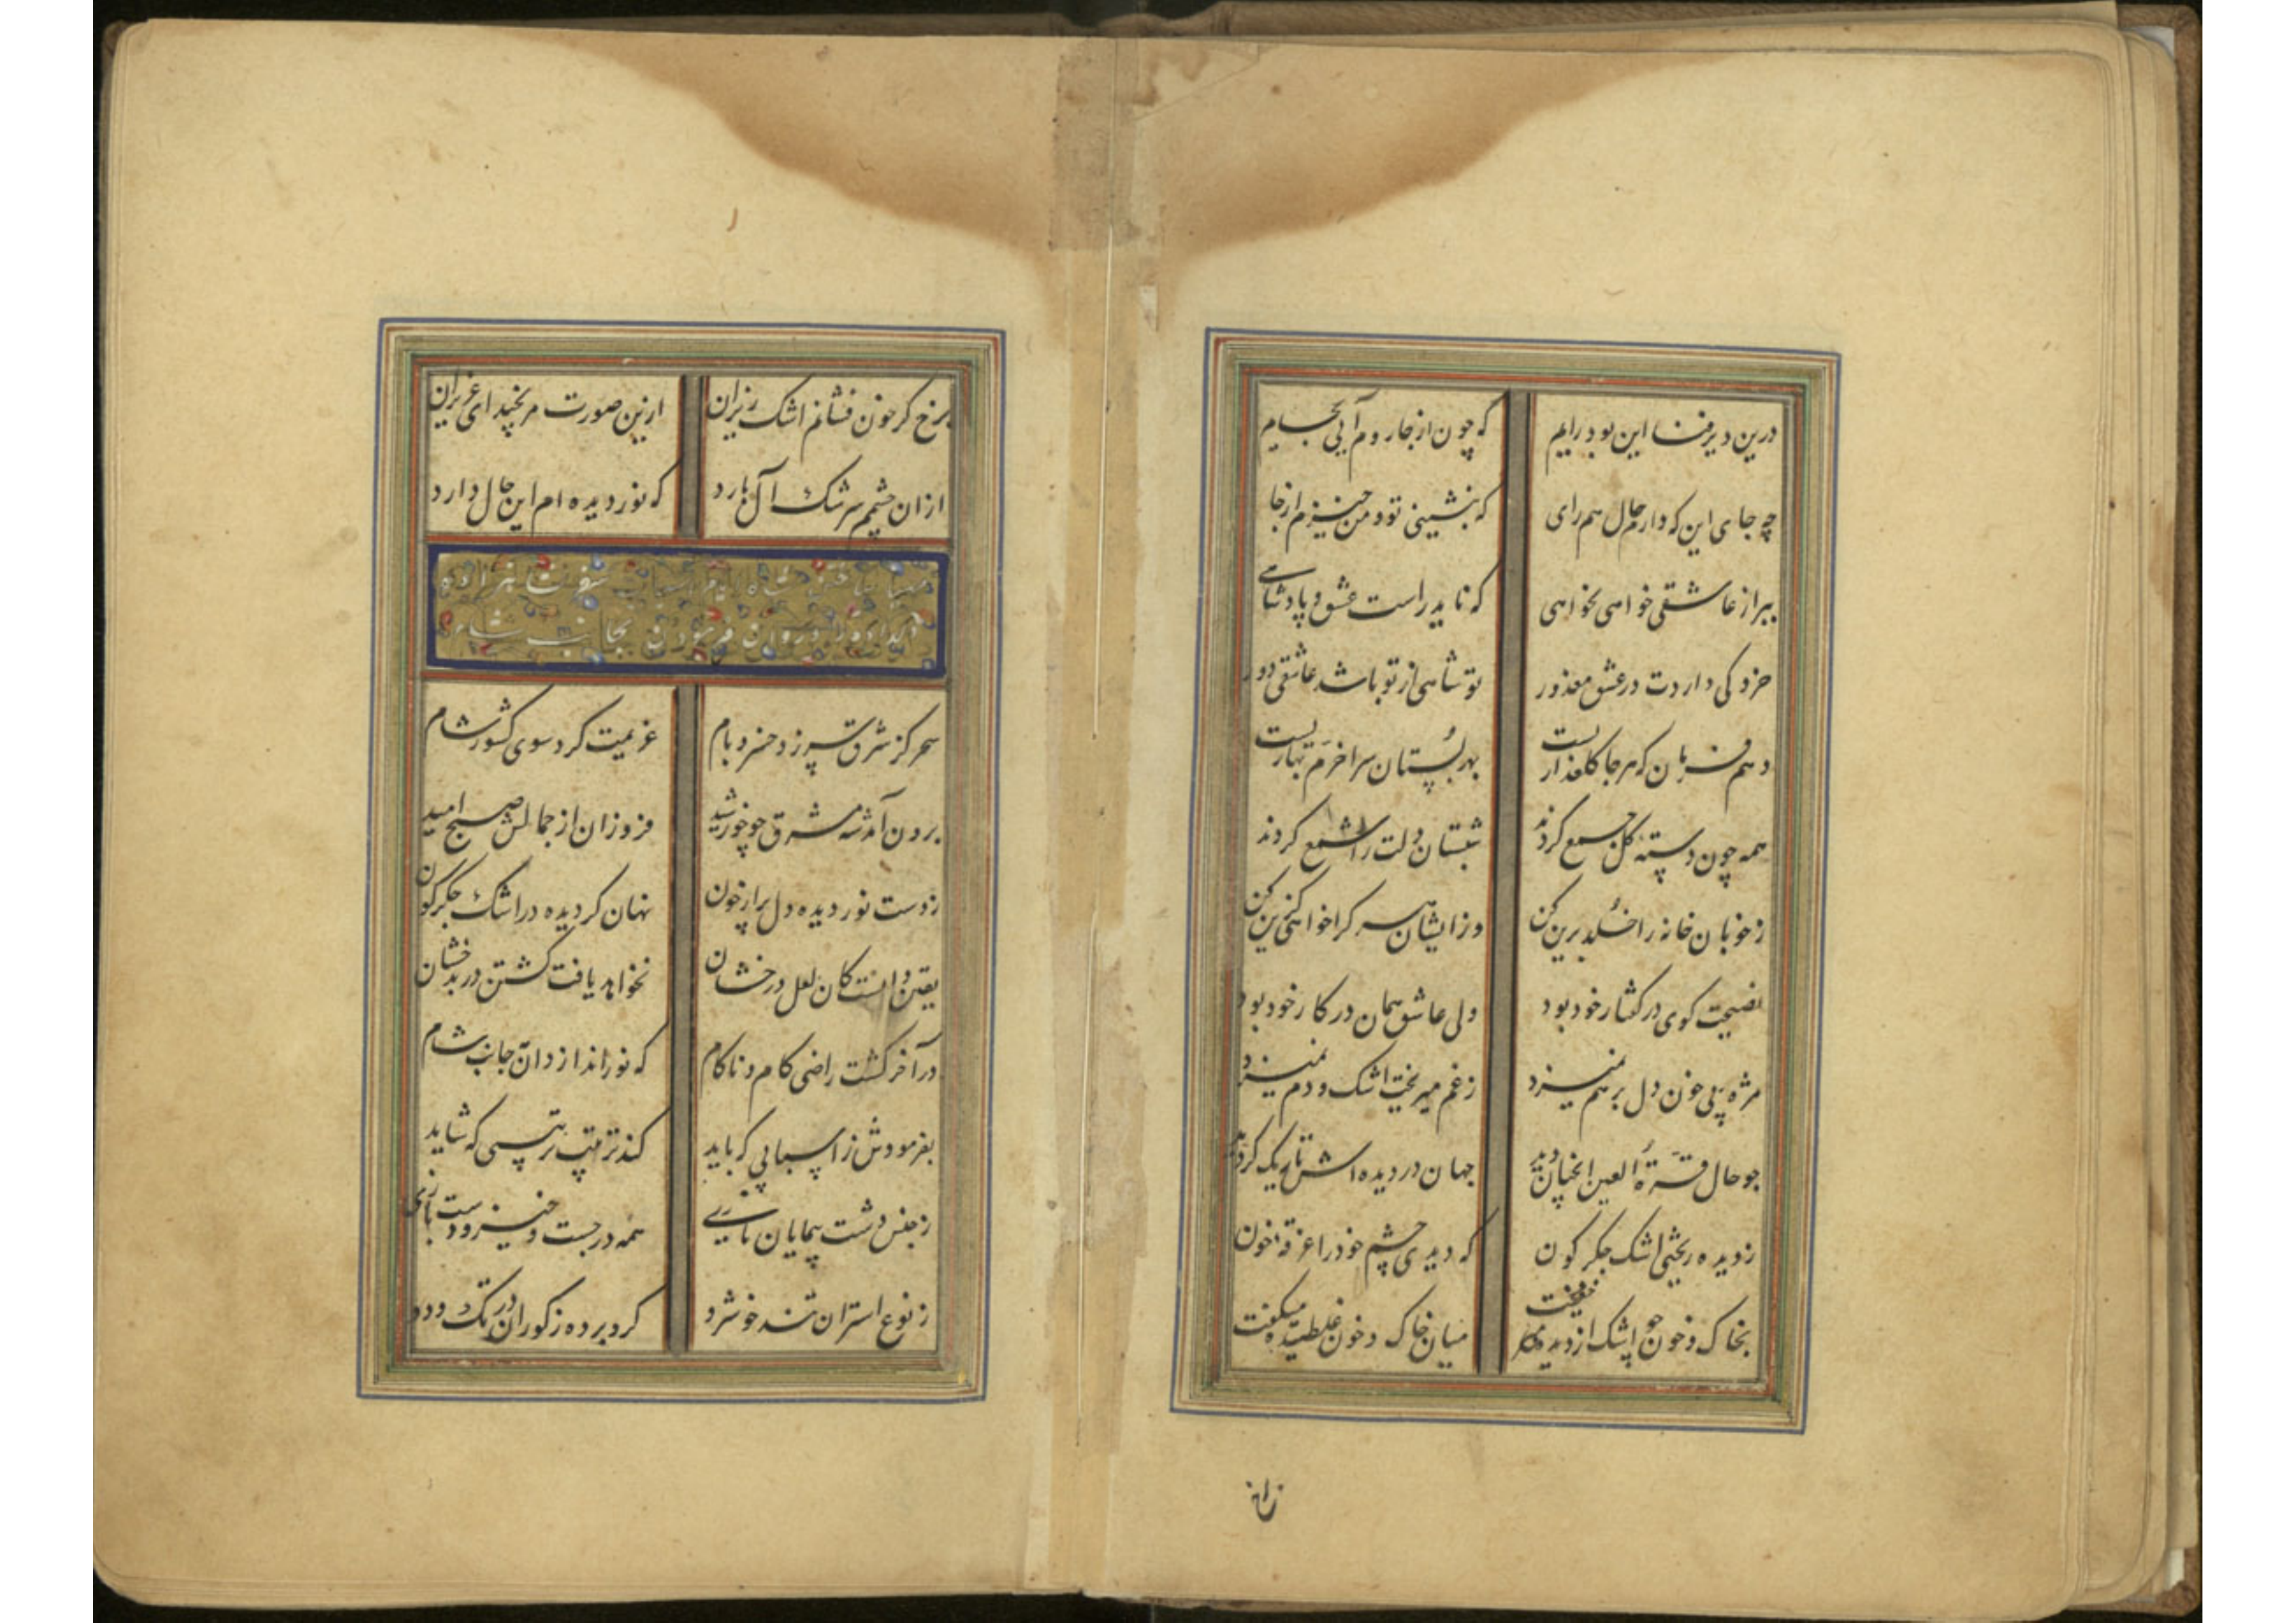 درین دیر فنا این بود رایم که چون از جا روم آیی بجایم
چه جای این که دارم حال هم رای که بنشینی تو و من خیزم از جا
ببر از عاشقی خواهی نخواهی که ناید راست عشق و پادشاهی
خرد کی داردت در عشق معذور تو شاهی از تو باشد عاشقی دور
دهم فرمان که هر جا گلعذاریست بهر بستان سرا خرم بهاریست
همه چون دسته گل جمع کردند شبستان دلت را شمع کردند
ز خوبان خانه را خلد برین کن وز ایشان هر کرا خواهی گزین کن
نصیحت کوی در گفتار خود بود ولی عاشق همان در کار خود بود
مژه بی خون دل بر هم نمیزد ز غم میریخت اشک و دم نمیزد
جو حال قرة العین انچنان دید جهان در دیده اش تاریک گردید
ز دیده ریختی اشک جکر کون که دیدی چشم خود را غرقه خون
بخاک و خون جو اشک از دیده میخفت میان خاک و خون غلطیده میکفت
برخ کر خون فشانم اشک ریزان ازین صورت مرنجید ای عزیزان
ازان چشمم سرشک آل بارد که نور دیده ام این حال دارد
سحر کز شرق شیر زد خسرو بام عزیمت کرد سوی کشور شام
برون آمد شه مشرق چو خورشید فروزان از جمالش صبح امید
ز دست نور دیده دل پر از خون نهان کردیده در اشک جکر کون
یقین دانست کان لعل درخشان نخواهد یافت گشتن در بدخشان
در آخر کشت راضی کام و ناکام که نور اندازد آن جانب شام
بفرمودش ز اسبابی که باید کند ترتیب ترتیبی که شاید
ز جنس دشت پیمایان تازی همه در جست و خیز و دست بازی
ز نوع استران تند خوش رو کرو برده ز کوران در تک و دو